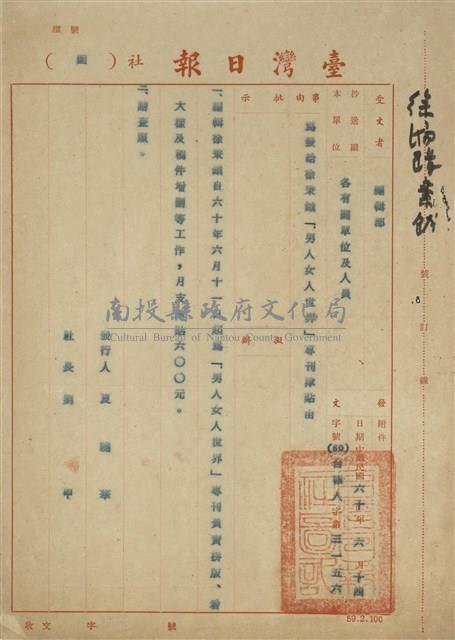 號 檔
臺灣日報 社（ 函 ）
受文者 編輯部
抄送副本單位 各有關單位及人員
事由 為發給徐秉鉞「男人女人世界」專刊津貼由
批示
擬辦
發文
附件
日期 中華民國六十年六月十四
字號 (60)台 人字第三一五六
一、編輯徐秉鉞自六十年六月十一日起為「男人女人世界」專刊負責拼版、看
大樣及稿件增刪等工作，月支津貼六〇〇元。
二、請查照。
發行人 夏 華
社長 劉 甲
號 訂 線
南投縣政府文化局
Cultural Bureau of Nantou County Government
收文 字 號
59.2.100